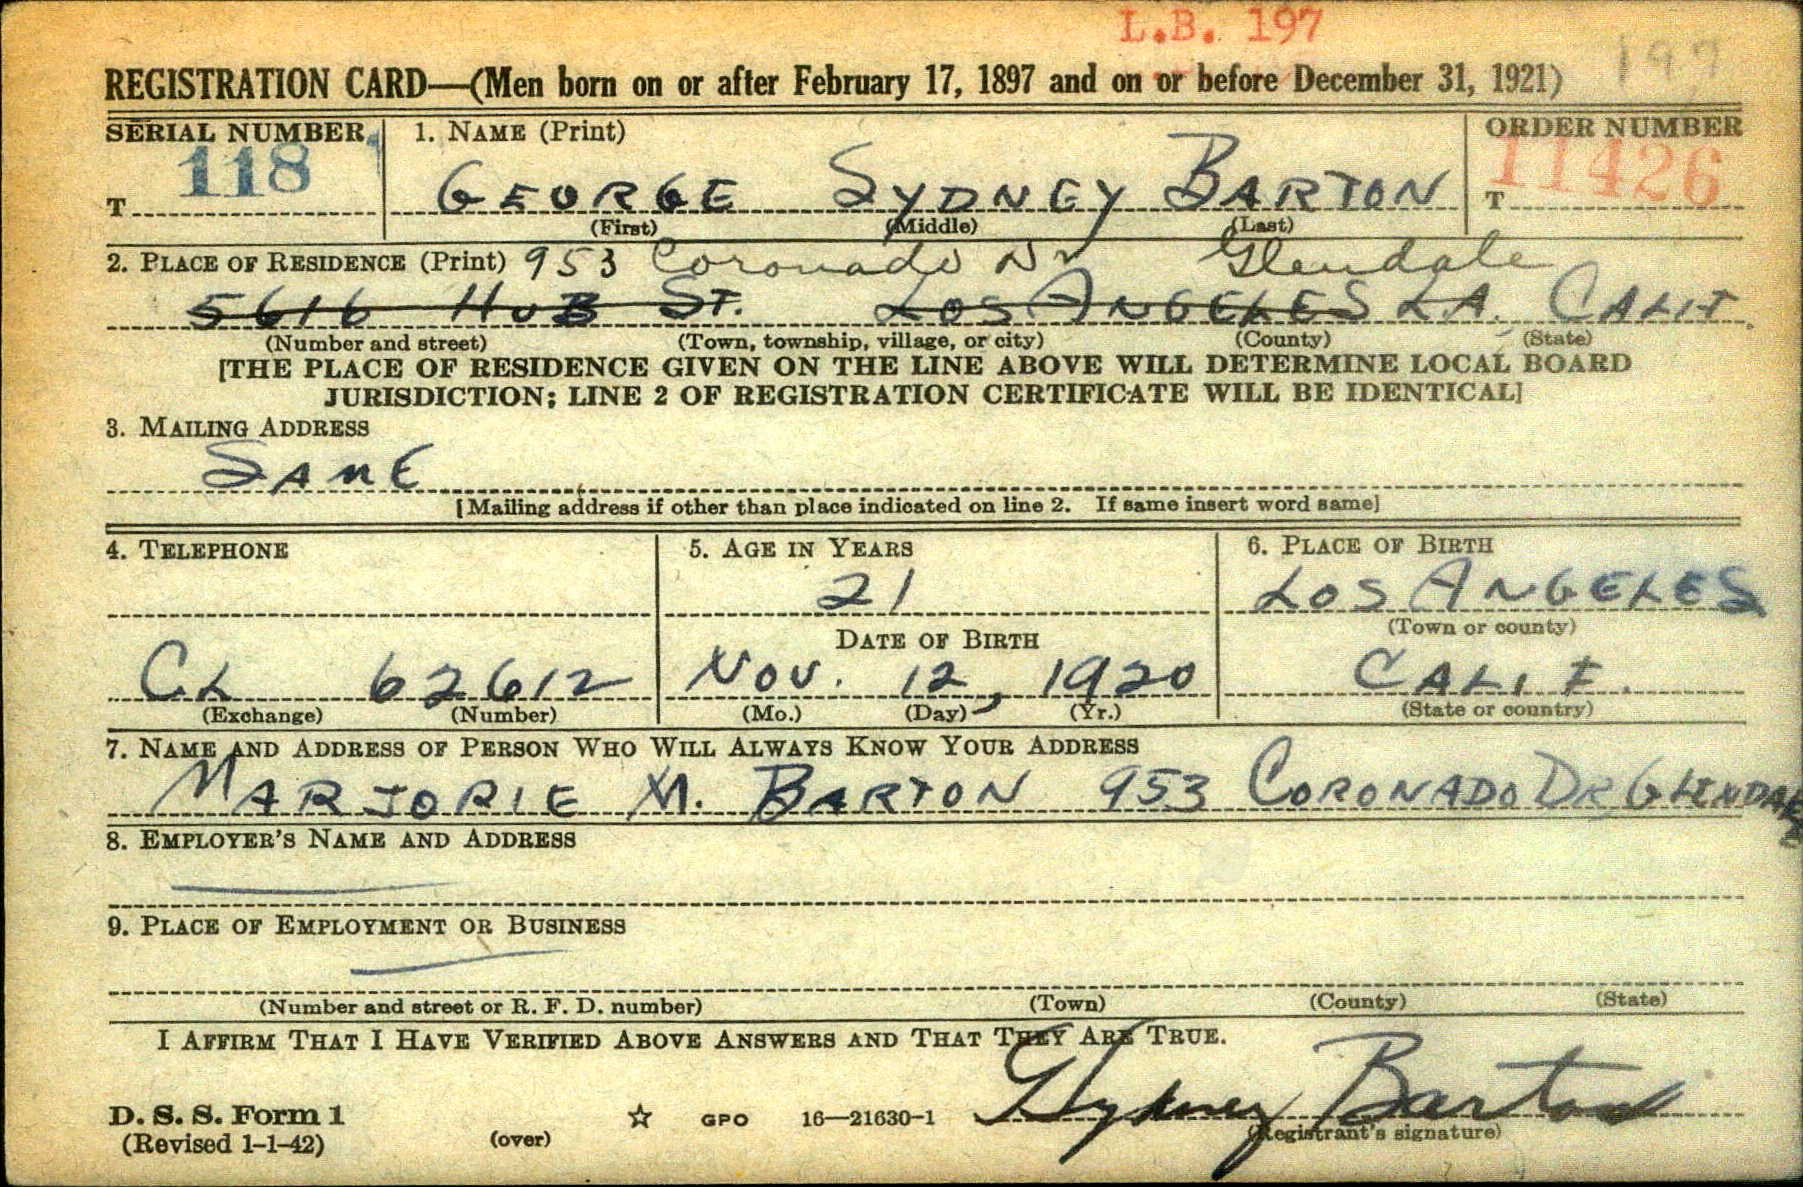 L.B. 197
197
REGISTRATION CARD—(Men born on or after February 17, 1897 and on or before December 31, 1921)
SERIAL NUMBER 1. NAME (Print) ORDER NUMBER
118 11426
T GEORGE SYDNEY BARTON T
(First) (Middle) (Last)
2. PLACE OF RESIDENCE (Print) 953 Coronado Dr Glendale
5616 HUB ST. LOS ANGELES L.A. CALIF.
(Number and street) (Town, township, village, or city) (County) (State)
[THE PLACE OF RESIDENCE GIVEN ON THE LINE ABOVE WILL DETERMINE LOCAL BOARD
JURISDICTION; LINE 2 OF REGISTRATION CERTIFICATE WILL BE IDENTICAL]
3. MAILING ADDRESS
SAME
[Mailing address if other than place indicated on line 2. If same insert word same]
4. TELEPHONE 5. AGE IN YEARS 6. PLACE OF BIRTH
21 LOS ANGELES
DATE OF BIRTH (Town or county)
CL 62612 NOV. 12, 1920 CALIF.
(Exchange) (Number) (Mo.) (Day) (Yr.) (State or country)
7. NAME AND ADDRESS OF PERSON WHO WILL ALWAYS KNOW YOUR ADDRESS
MARJORIE M. BARTON 953 CORONADO DR, GLENDALE
8. EMPLOYER'S NAME AND ADDRESS
9. PLACE OF EMPLOYMENT OR BUSINESS
(Number and street or R. F. D. number) (Town) (County) (State)
I AFFIRM THAT I HAVE VERIFIED ABOVE ANSWERS AND THAT THEY ARE TRUE.
D. S. S. Form 1 ☆ GPO 16—21630-1 G Sydney Barton
(Revised 1-1-42) (over) (Registrant's signature)